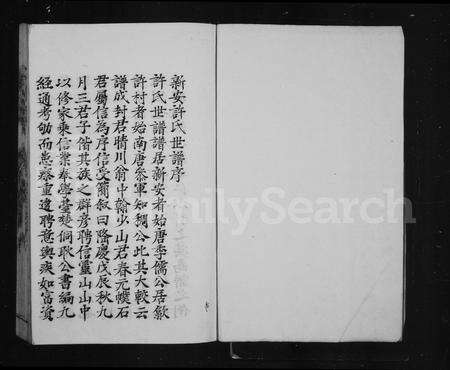 新安許氏世譜序
許氏世譜譜居新安者始唐李儒公居歙
許村者始南唐叅軍知稠公此其大較云
譜成封君晴川翁中翰少山君春元幞石
君屬信為序信受簡叙曰隆慶戊辰秋九
月三君子偕其族之群彦聘信靈山山中
以修家乘信業奉學臺楚侗耿公書編九
經通考劬而患叅重違聘意與疾如富資
FamilySearch